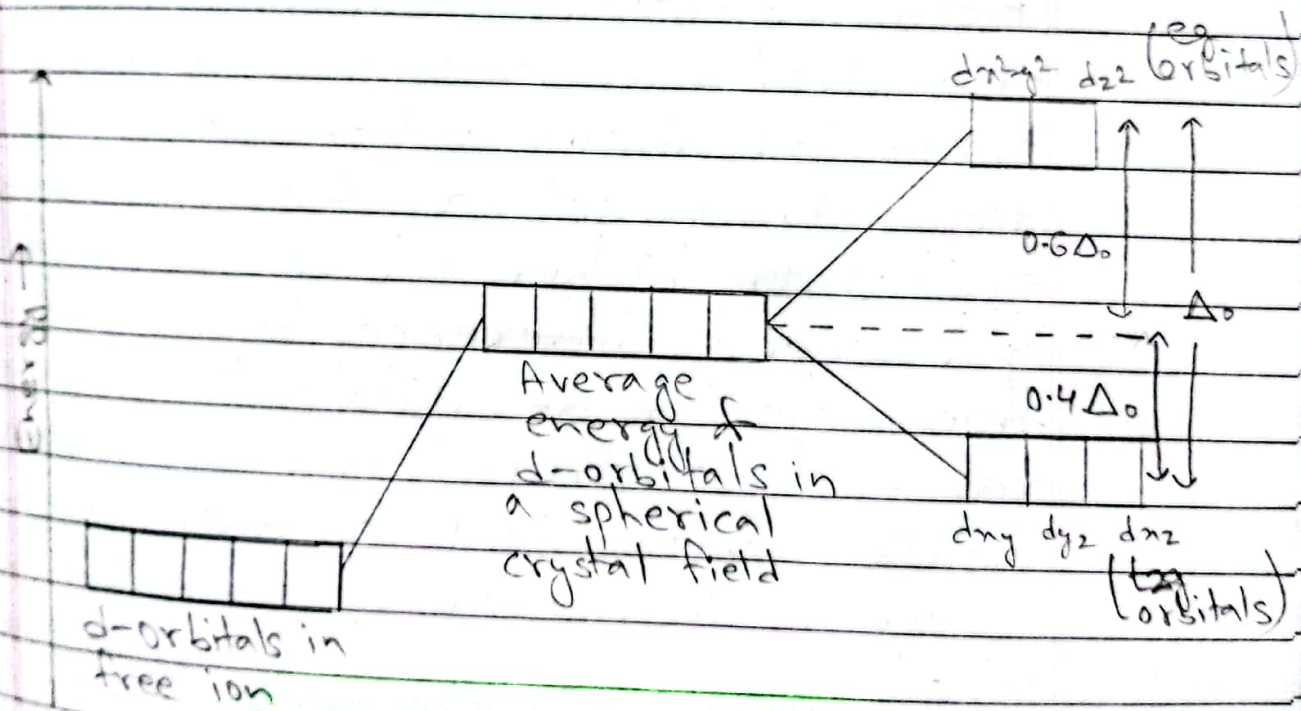 (eg
dx²-y² dz2 orbitals)
Energy →
0.6Δo
Δo
Average
energy of
d-orbitals in
a spherical
crystal field
0.4Δo
dxy dyz dxz
(t2g
orbitals)
d-orbitals in
free ion